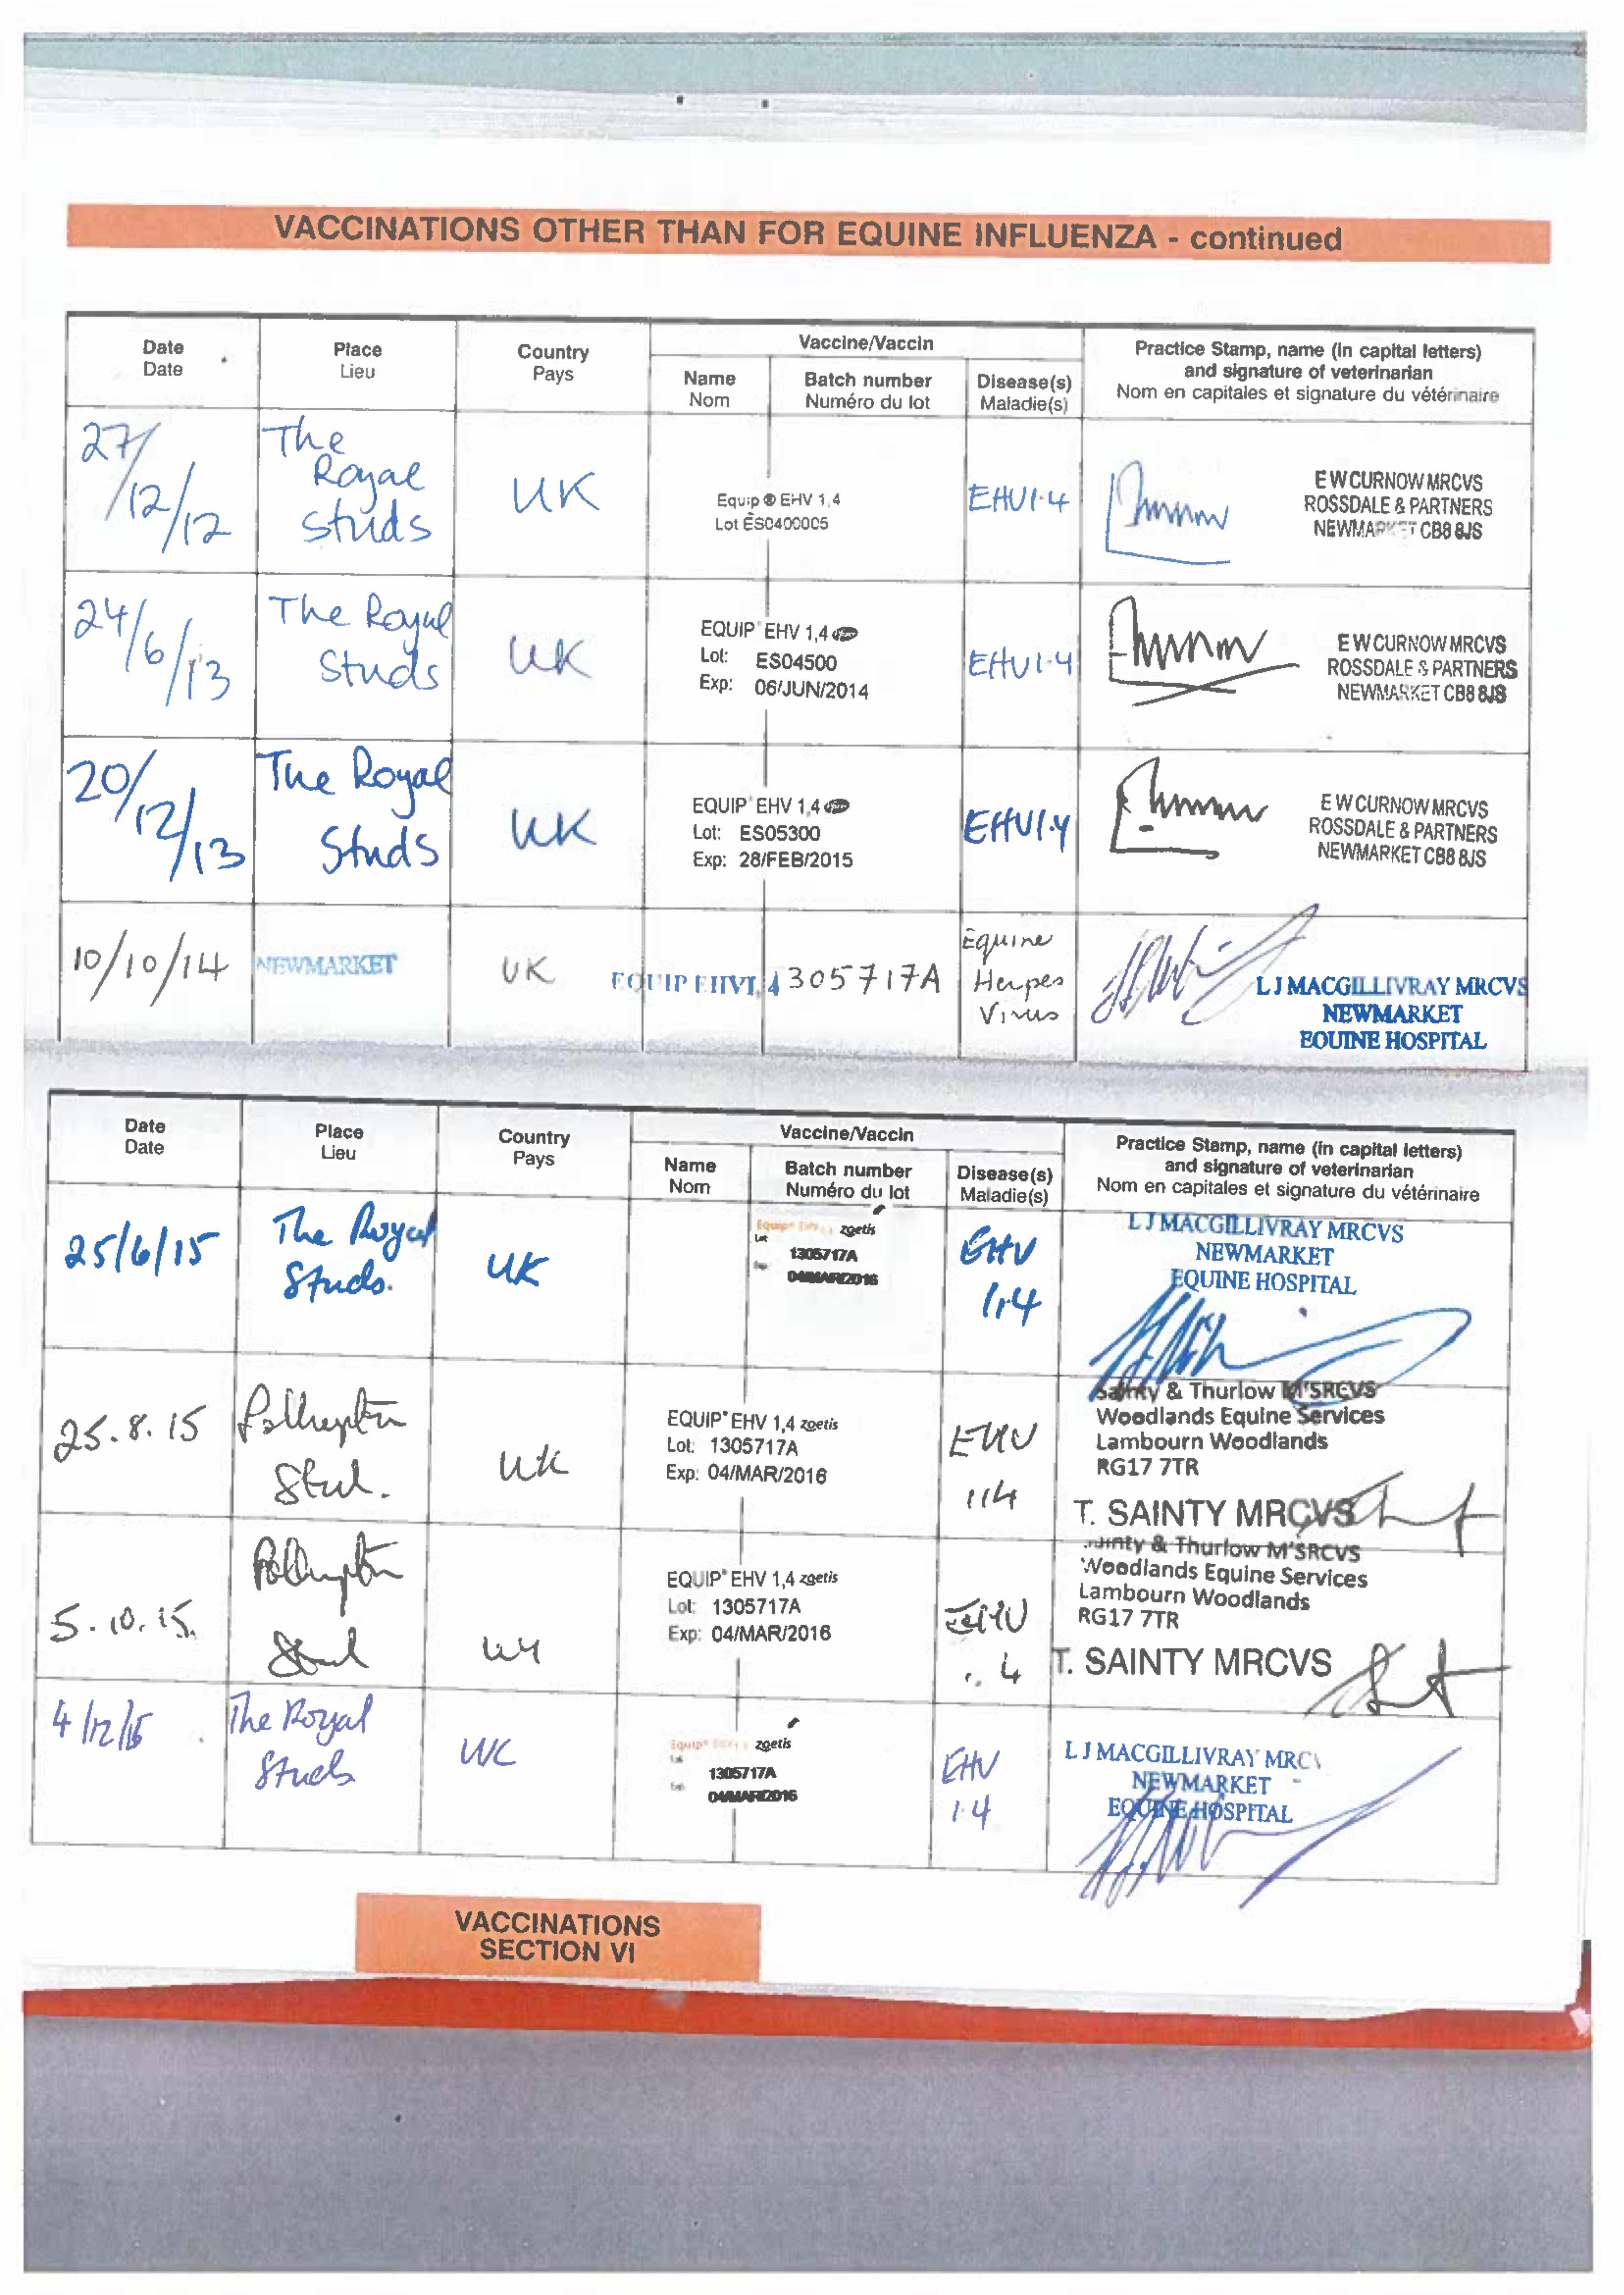 VACCINATIONS OTHER THAN FOR EQUINE INFLUENZA - continued
Date
Date
Place
Lieu
Country
Pays
Vaccine/Vaccin
Name
Nom
Batch number
Numéro du lot
Disease(s)
Maladie(s)
Practice Stamp, name (in capital letters)
and signature of veterinarian
Nom en capitales et signature du vétérinaire
27/12/12
The
Royal
Studs
UK
Equip ® EHV 1,4
Lot ES0400005
EHV1.4
E W CURNOW MRCVS
ROSSDALE & PARTNERS
NEWMARKET CB8 8JS
24/6/13
The Royal
Studs
UK
EQUIP EHV 1,4
Lot: ES04500
Exp: 06/JUN/2014
EHV1.4
E W CURNOW MRCVS
ROSSDALE & PARTNERS
NEWMARKET CB8 8JS
20/12/13
The Royal
Studs
UK
EQUIP EHV 1,4
Lot: ES05300
Exp: 28/FEB/2015
EHV1.4
E W CURNOW MRCVS
ROSSDALE & PARTNERS
NEWMARKET CB8 8JS
10/10/14
NEWMARKET
UK
EQUIP EHV1,4
305717A
Equine
Herpes
Virus
L J MACGILLIVRAY MRCVS
NEWMARKET
EQUINE HOSPITAL
Date
Date
Place
Lieu
Country
Pays
Vaccine/Vaccin
Name
Nom
Batch number
Numéro du lot
Disease(s)
Maladie(s)
Practice Stamp, name (in capital letters)
and signature of veterinarian
Nom en capitales et signature du vétérinaire
25/6/15
The Royal
Studs.
UK
Equip zoetis
Lot
1305717A
Exp 04/MAR/2016
EHV
1,4
L J MACGILLIVRAY MRCVS
NEWMARKET
EQUINE HOSPITAL
25.8.15
Stud.
UK
EQUIP EHV 1,4 zoetis
Lot: 1305717A
Exp: 04/MAR/2016
EHV
114
Sainty & Thurlow M'SRCVS
Woodlands Equine Services
Lambourn Woodlands
RG17 7TR
T. SAINTY MRCVS
5.10.15.
Stud
UK
EQUIP EHV 1,4 zoetis
Lot: 1305717A
Exp: 04/MAR/2016
EHV
4
Sainty & Thurlow M'SRCVS
Woodlands Equine Services
Lambourn Woodlands
RG17 7TR
T. SAINTY MRCVS
4/12/15
The Royal
Studs
UK
Equip zoetis
Lot
1305717A
Exp 04/MAR/2016
EHV
1.4
L J MACGILLIVRAY MRCV
NEWMARKET
EQUINE HOSPITAL
VACCINATIONS
SECTION VI